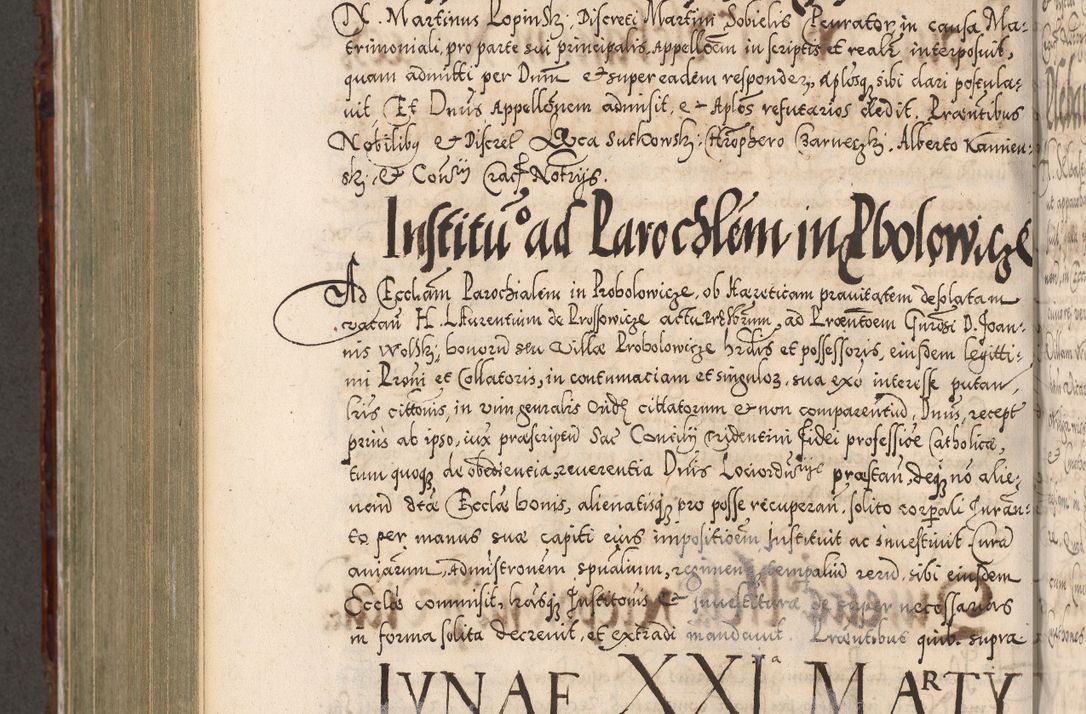 N. Martinus Lopinskj. Discreti Martini Sobielis Pcurator in causa Ma-
trimoniali, pro parte sui principalis, Appelloem in scriptis et reali interposuit,
quam admitti per Dnum et super eadem responderj, Aplosq sibi dari postula-
uit Et Dnus Appellonem admisit, et Aplos refutatorios dedit. Praesentibus
Nobilibus et Discret Luca Sutkowskj. Hrophero Zarneczkj. Alberto Kamien-
skj. et Consij Cracs Notrys.
Institu° ad Parochlem in Pbolowicze
Ad Ecclam Parochialem in Probolowicze, ob Haereticam prauitatem desolatam
vacan H. Laurentium de Prossowicze actu Prsbrum, ad Praesentoem Gnrosi D. Joan-
nis Wolskj, bonorū seu Villae Probolowicze hrdis et possessoris, eiusdem legitti-
mi Proni et Collatoris, in contumaciam et singuloz, sua exo interesse putan
lris cittonis, in vim genralis Cridę cittatorum et non comparentiū, Dnus, recept
prius ab ipso, iux praescriptū Sac Concilij Tridentini fidei professioe Catholica,
tum quoq de obedientia, reuerentia Dnis Loci Ordnrijs praestan, deq no alie-
nand dtae Ecclae bonis, alienatisq pro posse recuperan, solito corpali Juran-
to per manus suae capiti eius impositioem Instituit ac inuestiuit Cura
aniarum, Admistronem spualium, regimen temporaliū rerū, sibi eiusdem
Ecclae commisit, lrasq Institonis et inuestiturae de super necessarias
in forma solita decreuit, et extradi mandauit. Praesentibus quib. supra
LVNAE XXIᵃ MARTY